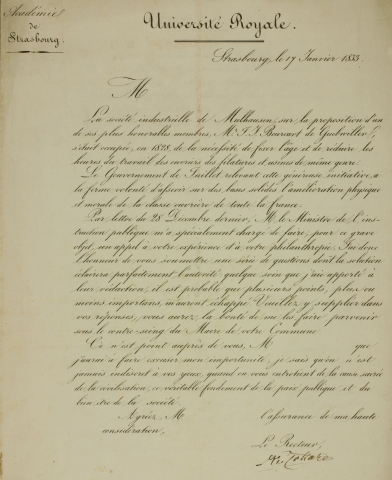 Académie
de
Strasbourg.
Université Royale.
Strasbourg, le 17 Janvier 1833.
M
La société industrielle de Mulhausen, sur la proposition d'un
de ses plus honorables membres, Mr. J. J. Bourcart de Guebwiller,
s'était occupée, en 1828, de la nécessité de fixer l'âge et de réduire les
heures du travail des ouvriers des filatures et usines de même genre.
Le Gouvernement de Juillet relevant cette généreuse initiative, a
la ferme volonté d'asseoir sur des bases solides l'amélioration physique
et morale de la classe ouvrière de toute la france.
Par lettre du 28 Décembre dernier, M. le Ministre de l'ins-
truction publique m'a spécialement chargé de faire, pour ce grave
objet, un appel à votre expérience et à votre philanthropie. J'ai donc
l'honneur de vous soumettre une série de questions dont la solution
éclairera parfaitement l'autorité quelque soin que j'aie apporté à
leur rédaction, il est probable que plusieurs points, plus ou
moins importans, m'auront échappé Veuillez y suppléer dans
vos réponses, vous aurez la bonté de me les faire parvenir
sous le contre-seing du Maire de votre Commune
Ce n'est point auprès de vous, M que
j'aurai à faire excuser mon importunité, je sais qu'on n'est
jamais indiscret à vos yeux, quand on vous entretient de la cause sacrée
de la civilisation, ce véritable fondement de la paix publique et du
bien être de la société.
Agréez, M l'assurance de ma haute
considération,
Le Recteur,